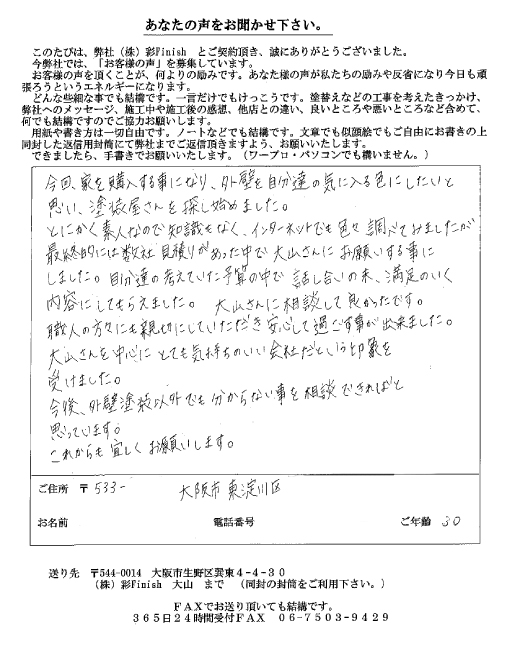 あなたの声をお聞かせ下さい。
このたびは、弊社（株）彩Finish とご契約頂き、誠にありがとうございました。
今弊社では、「お客様の声」を募集しています。
お客様の声を頂くことが、何よりの励みです。あなた様の声が私たちの励みや反省になり今日も頑
張ろうというエネルギーになります。
どんな些細な事でも結構です。一言だけでもけっこうです。塗替えなどの工事を考えたきっかけ、
弊社へのメッセージ、施工中や施工後の感想、他店との違い、良いところや悪いところなど含めて、
何でも結構ですのでご協力お願いします。
用紙や書き方は一切自由です。ノートなどでも結構です。文章でも似顔絵でもご自由にお書きの上
同封した返信用封筒にて弊社までご返信頂きますよう、お願いいたします。
できましたら、手書きでお願いいたします。（ワープロ・パソコンでも構いません。）
今回、家を購入する事になり、外壁を自分達の気に入る色にしたいと
思い、塗装屋さんを探し始めました。
とにかく素人なので知識もなく、インターネットでも色々調べてみましたが
最終的には数社見積りがあった中で大山さんにお願いする事に
しました。自分達の考えていた予算の中で話し合いの末、満足のいく
内容にしてもらえました。大山さんに相談して良かったです。
職人の方々にも親切にしていただき安心して過ごす事が出来ました。
大山さんを中心にとても気持ちのいい会社だという印象を
受けました。
今後、外壁塗装以外でも分からない事を相談できればと
思っています。
これからも宜しくお願いします。
ご住所 〒533- 大阪市東淀川区
お名前 電話番号 ご年齢 30
送り先 〒544-0014 大阪市生野区巽東4-4-30
（株）彩Finish 大山 まで （同封の封筒をご利用下さい。）
FAXでお送り頂いても結構です。
365日24時間受付FAX 06-7503-9429